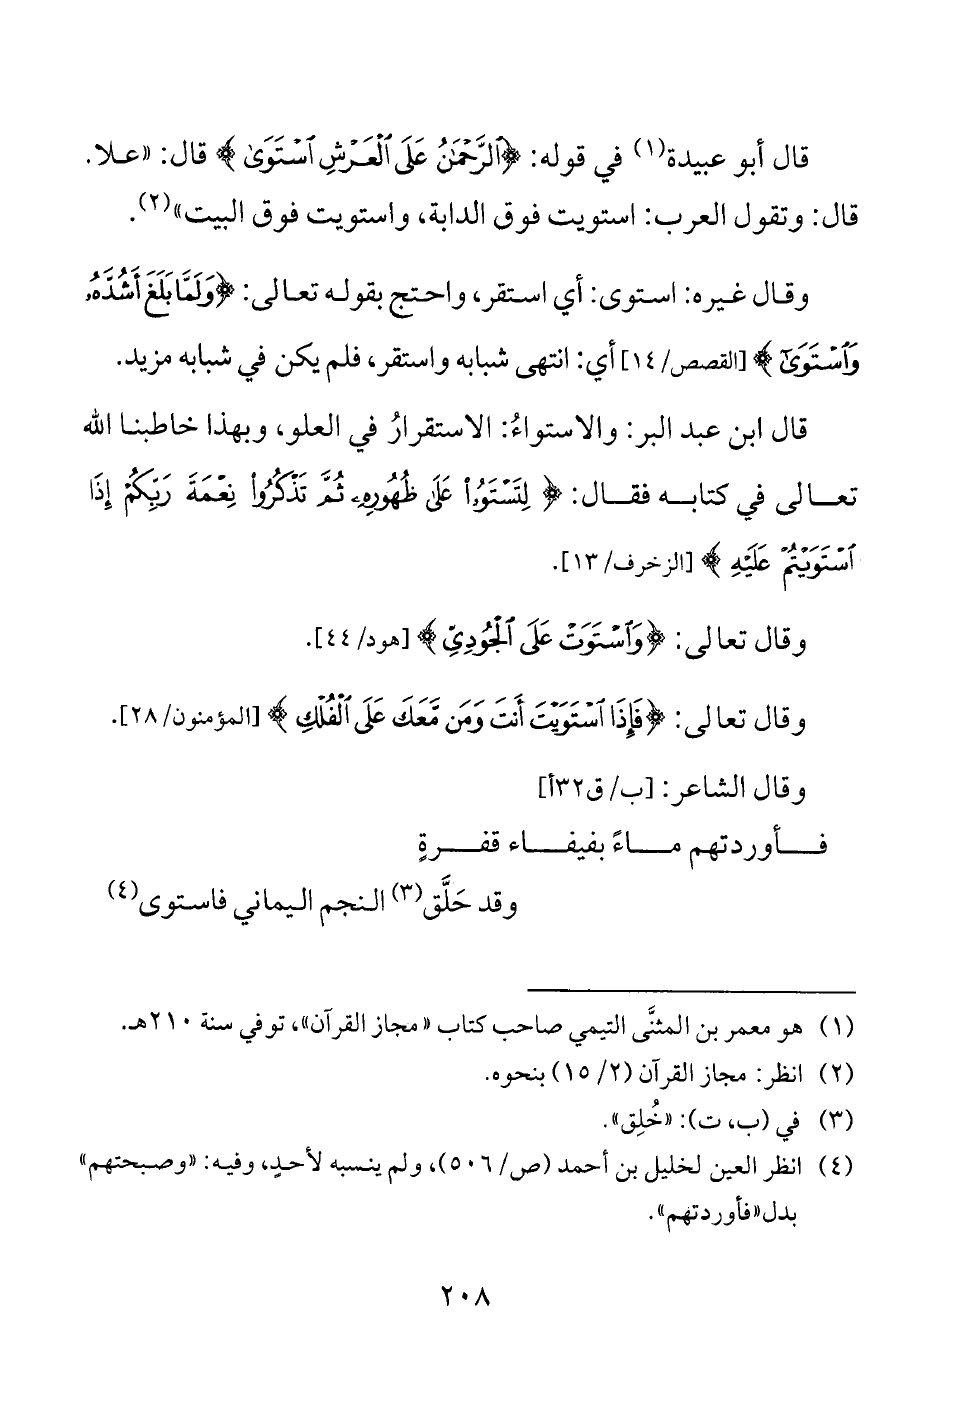 قال أبو عبيدة(١) في قوله: ﴿ٱلرَّحْمَٰنُ عَلَى ٱلْعَرْشِ ٱسْتَوَىٰ﴾ قال: «علا.
قال: وتقول العرب: استويت فوق الدابة، واستويت فوق البيت»(٢).
وقال غيره: استوى: أي استقر، واحتج بقوله تعالى: ﴿وَلَمَّا بَلَغَ أَشُدَّهُۥ
وَٱسْتَوَىٰٓ﴾ [القصص/ ١٤] أي: انتهى شبابه واستقر، فلم يكن في شبابه مزيد.
قال ابن عبد البر: والاستواءُ: الاستقرارُ في العلو، وبهذا خاطبنا الله
تعالى في كتابه فقال: ﴿لِتَسْتَوُۥا۟ عَلَىٰ ظُهُورِهِۦ ثُمَّ تَذْكُرُوا۟ نِعْمَةَ رَبِّكُمْ إِذَا
ٱسْتَوَيْتُمْ عَلَيْهِ﴾ [الزخرف/ ١٣].
وقال تعالى: ﴿وَٱسْتَوَتْ عَلَى ٱلْجُودِيِّ﴾ [هود/ ٤٤].
وقال تعالى: ﴿فَإِذَا ٱسْتَوَيْتَ أَنتَ وَمَن مَّعَكَ عَلَى ٱلْفُلْكِ﴾ [المؤمنون/ ٢٨].
وقال الشاعر: [ب/ ق٣٢أ]
فـأوردتهم مـاءً بفيفـاء قفـرةٍ
وقد حَلَّق(٣) النجم اليماني فاستوى(٤)
(١) هو معمر بن المثنَّى التيمي صاحب كتاب «مجاز القرآن»، توفي سنة ٢١٠هـ.
(٢) انظر: مجاز القرآن (٢/ ١٥) بنحوه.
(٣) في (ب، ت): «خُلِق».
(٤) انظر العين لخليل بن أحمد (ص/ ٥٠٦)، ولم ينسبه لأحدٍ، وفيه: «وصبحتهم»
بدل«فأوردتهم».
٢٠٨